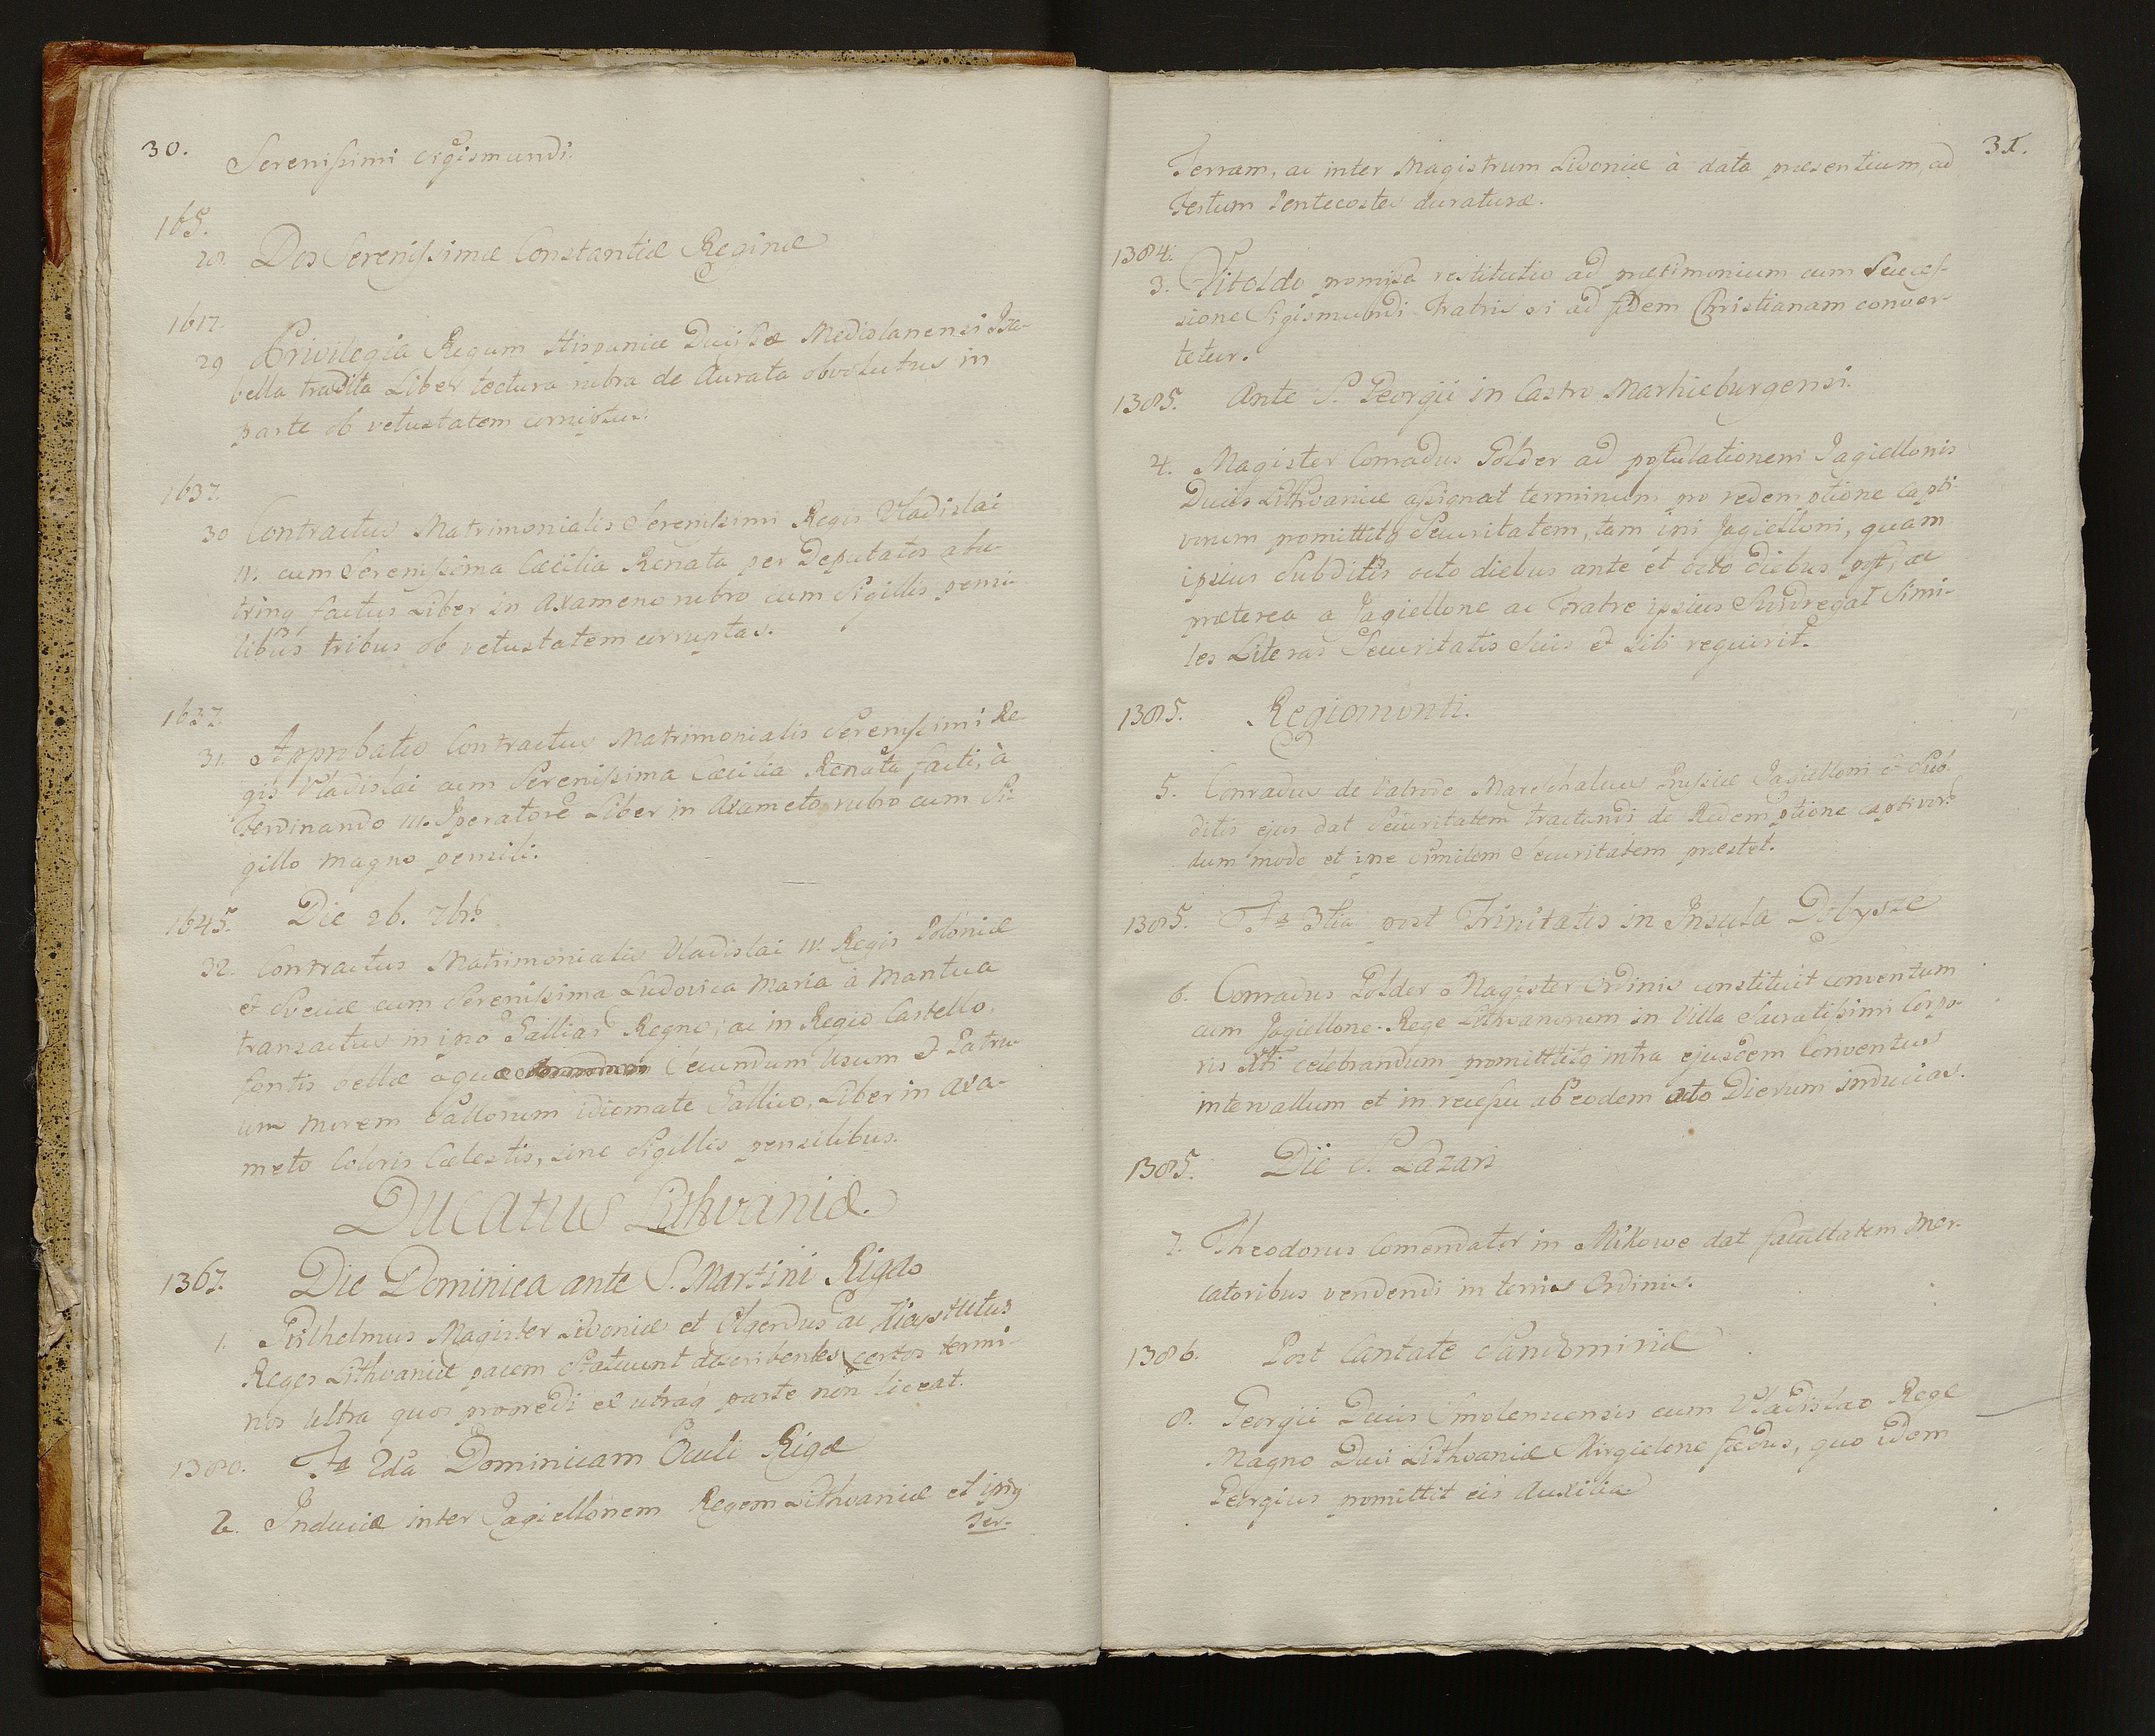 30.
Serenissimi Sigismundi.
165.
28. Dos Serenissimæ Constantiæ Reginæ
1617.
29 Privilegia Regum Hispaniæ Ducissæ Mediolanensi Isa-
bella tradita Liber tectura rubra de Aurata obvolutus in
parte ob vetustatem corruptus.
1637.
30 Contractus Matrimonialis Serenissimi Regis Vladislai
IV. cum Serenissima Cæcilia Renata per Deputatos abu-
trinq factus Liber in Axameno rubro cum Sigillis pensi-
libus tribus ob vetustatem corruptas.
1637.
31. Approbatio Contractus Matrimonialis Serenissimi Re
gis Vladislai cum Serenissima Cæcilia Renata facti, à
Ferdinando III. Iperatore Liber in Axameto rubro cum Si-
gillo magno pensili.
1645. Die 26. 7br̃s
32. Contractus Matrimonialis Vladislai IV. Regis Poloniæ
et Sveciæ cum Serenissima Ludovica Maria à Mantua
transactus in ipso Galliar Regno, ac in Regio Castello,
fontis bellæ aquæ Secundum Usum et Patru-
um morem Gallorum idiomate Gallico, Liber in Axa-
meto Coloris Cælestis, sine Sigillis pensilibus.
Ducatus Lithvaniæ.
1367. Die Dominica ante S. Martini Rigæ
1. Guilhelmus Magister Livoniæ et Olgerdus ac
Reges Lithvaniæ pacem Statuunt describentes certos termi-
nos ultra quos progredi ex utraq parte non liceat.
1380. Fa 2da Dominicam Oculi Rigæ
2. Induciæ inter Jagiellonem Regem Lithvaniæ et ipsq
Ter-
31.
Terram, ac inter Magistrum Livoniæ à data præsentium, ad
Festum Pentecostes duraturæ.
1384.
3. Vitoldo promissa restitutio ad patrimonium cum Succes-
sione Sigismundi Fratris si ad fidem Christianam conver-
tetur.
1385. Ante S. Georgii in Castro Marhieburgensi.
4. Magister Conradus Zolder ad postulationem Jagiellonis
Ducis Lithvaniæ assignat terminum pro redemptione Capti-
vorum promittitq Securitatem, tam ipsi Jagielloni, quam
ipsius Subditis octo diebus ante et octo diebus post, ac
præterea a Jagiellone ac Fratre ipsius Skirdregal Simi-
les Literas Securitatis Suis et Sibi requirit.
1385. Regiomonti.
5. Conradus de Valrode Mareschalcus Prussiæ Jagielloni et Sub-
ditis ejus dat Securitatem tractandi de Redemptione captivor
dum modo et ipse Similem Securitatem præstet.
1385. Fa 3tia post Trinitatis in Insula Dobysze
6. Conradus Zolder Magister Ordinis constituit conventum
cum Jagiellone Rege Lithvanorum in Villa Sacratissimi Corpo-
ris Xti celebrandum promittitq intra ejusdem Conventus
intervallum et in recessu ab eodem octo Dierum inducias.
1385. Die S. Lazari
7. Theodorus Comendator in Mikowe dat facultatem Mer-
catoribus vendendi in terris Ordinis.
1386. Post Cantate Sandomiriæ
8. Georgii Ducis Smolenscensis cum Vladislao Rege
Magno Duci Lithvaniæ Skirgielone fædus, quo idem
Georgius promittit eis Auxilia